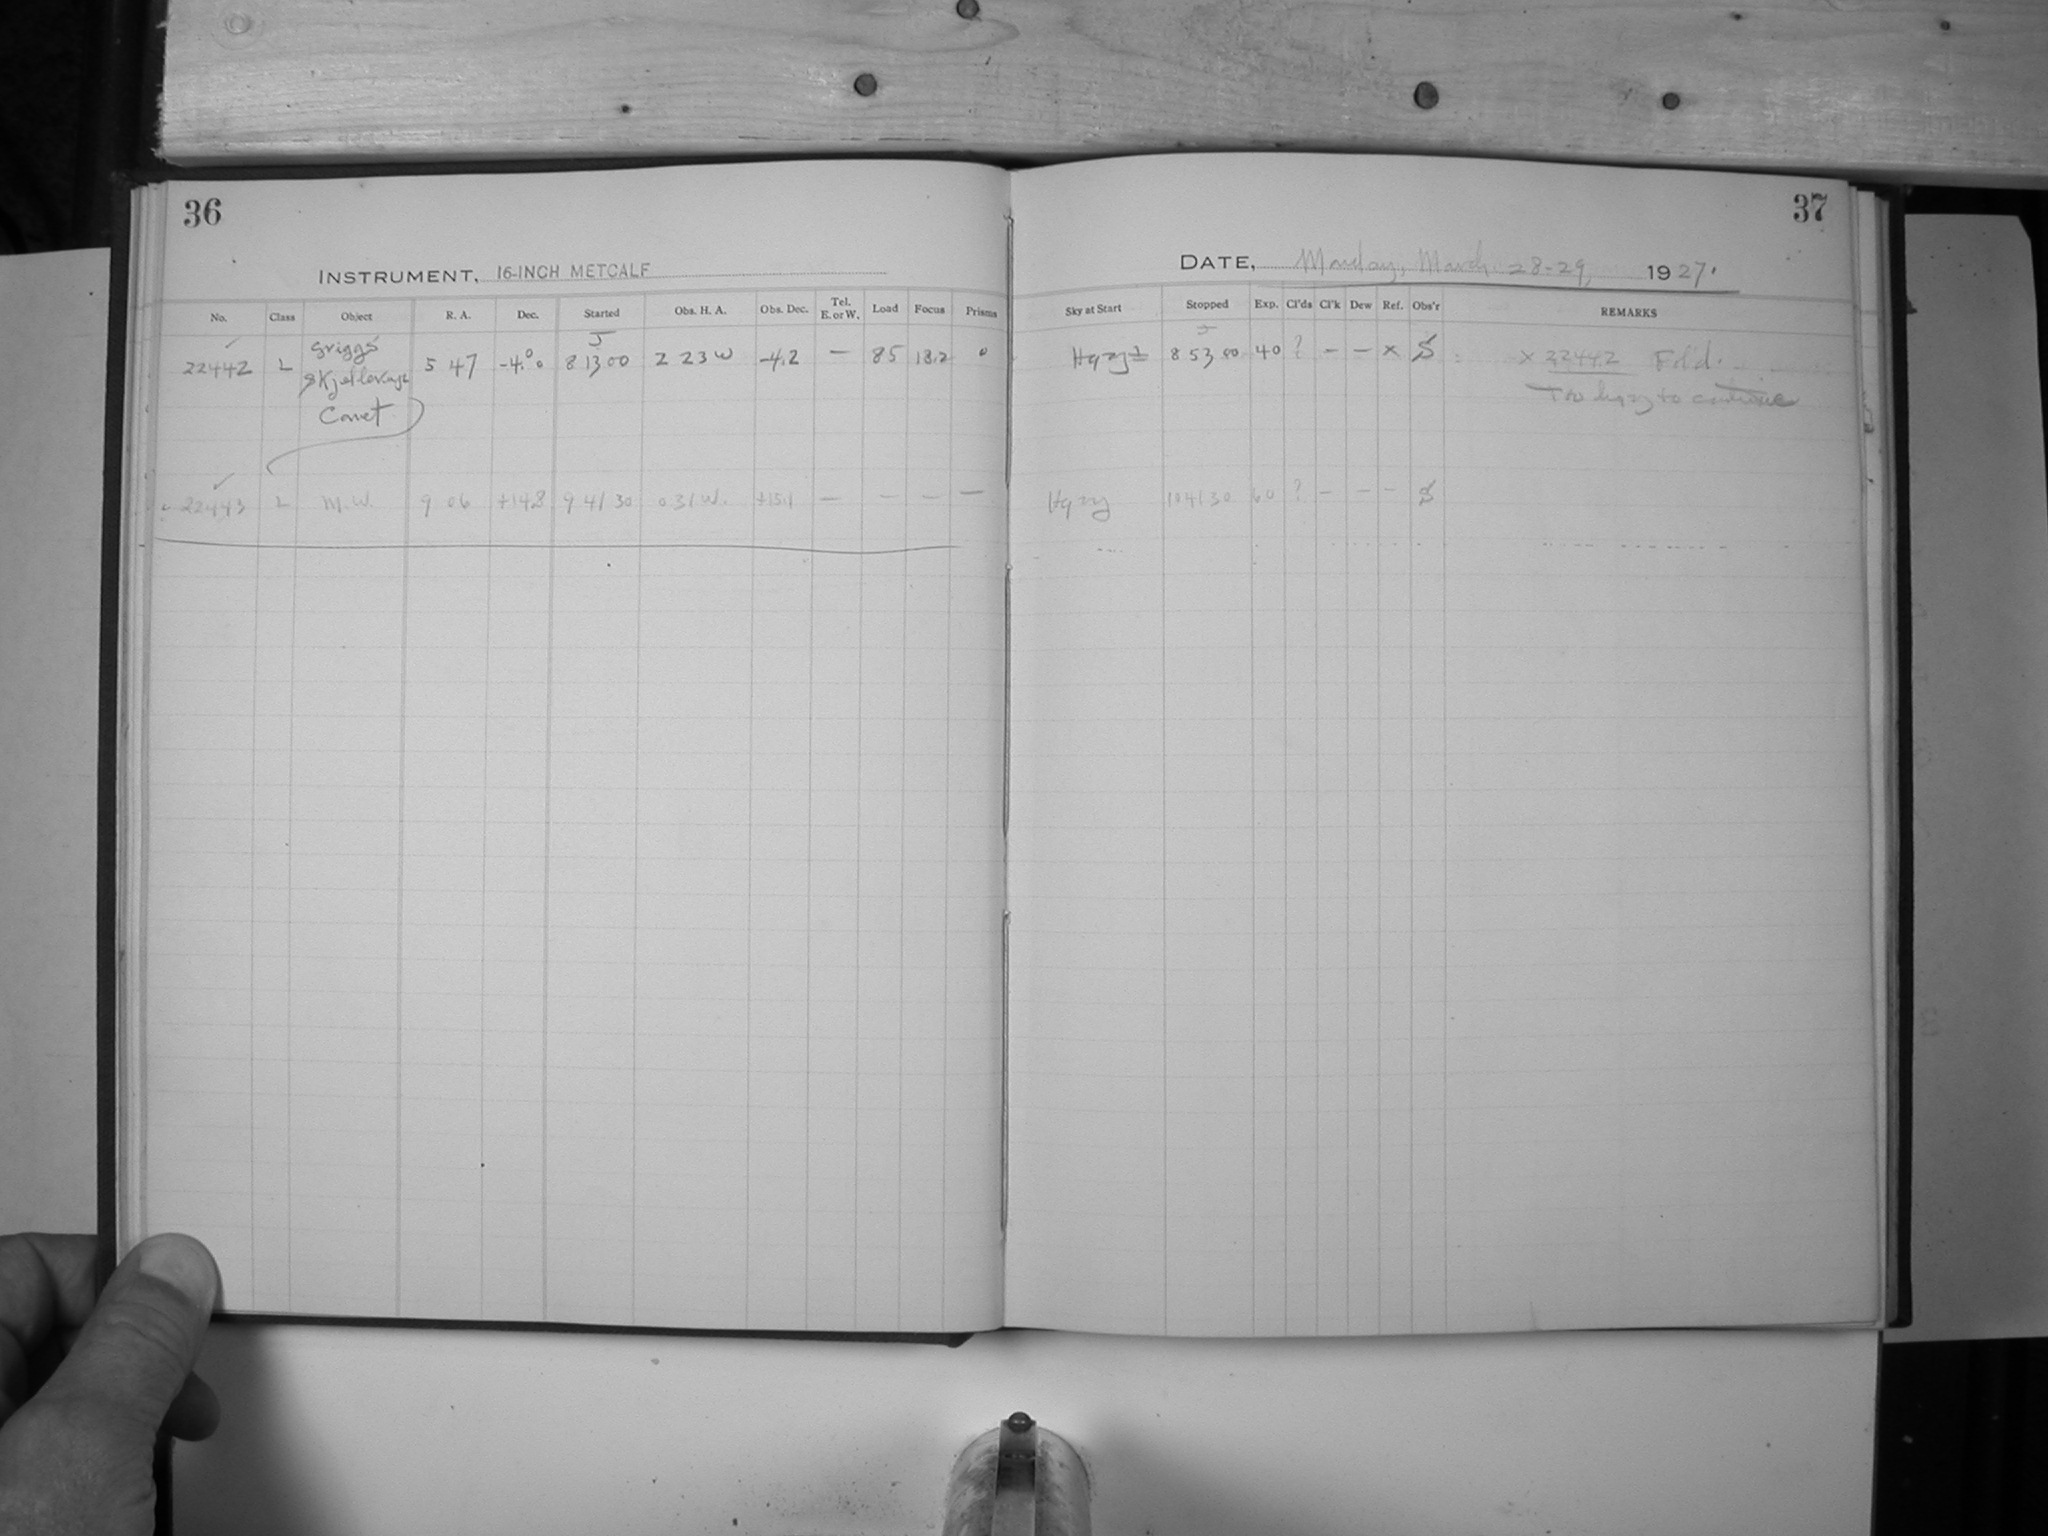 36
INSTRUMENT, 16-INCH METCALF
No. Class Object R. A. Dec. Started Obs. H. A. Obs. Dec. Tel. E. or W. Load Focus Prisms
22442 L Griggs 5 47 -4.°0 J 8 13 00 2 23 W -4.2 — 85 18.2 0
Skjellerup
Comet
22443 L M.W. 9 06 +14.8 9 41 30 0 31 W. +15.1 — — — —
37
DATE, Monday, March 28-29, 1927.
Sky at Start Stopped Exp. Cl'ds Cl'k Dew Ref. Obs'r REMARKS
Hazy J 8 53 00 40 ? — — x S x 22442 Fol'd.
Too hazy to continue
Hazy 10 41 30 60 ? — — - S